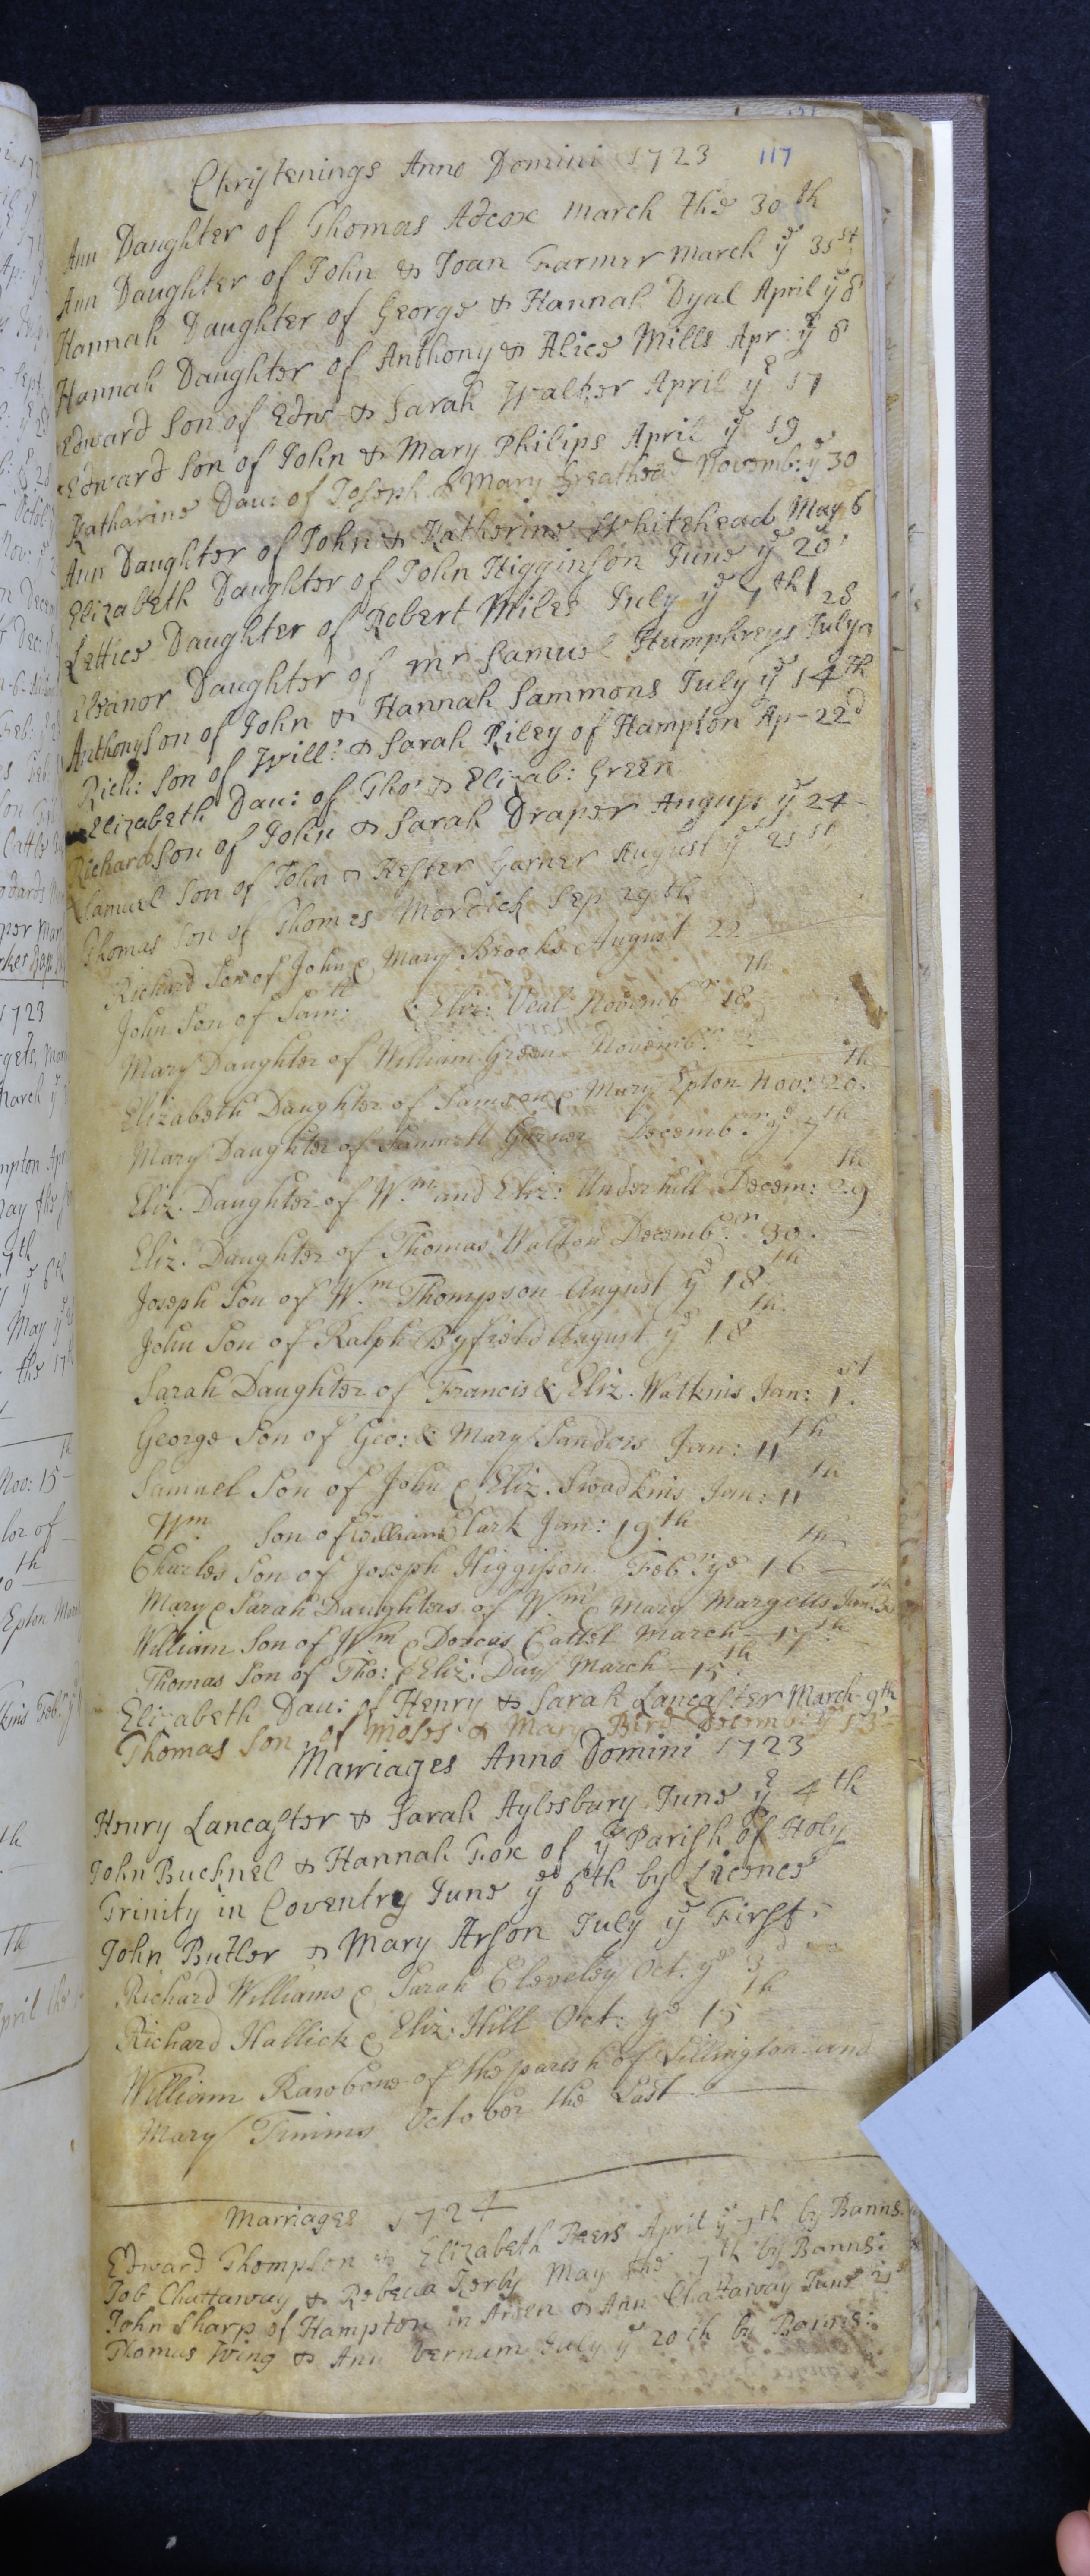 Christenings Anno Domini 1723 117
Ann Daughter of Thomas Adcox March the 30th
Ann Daughter of John & Joan Farmer March ye 31st
Hannah Daughter of George & Hannah Dyal April ye 8
Hannah Daughter of Anthony & Alice Mills Apr: ye 8
Edward Son of Edw- & Sarah Walker April ye 17
Edward Son of John & Mary Philips April ye 19
Katharine Dau: of Joseph & Mary Greathead Novemb: ye 30
Ann Daughter of John & Katherine Whitehead May 6
Elizabeth Daughter of John Higginson June ye 20
Lettice Daughter of Robert Miles July ye 7th 28
Eleanor Daughter of Mr Samuel Humphreys July
Anthony Son of John & Hannah Sammons July ye 14th
Rich: Son of Will: & Sarah Riley of Hampton Ap- 22d
Elizabeth Dau: of Tho: & Elizab: Green
Richard Son of John & Sarah Draper August ye 24
Samuel Son of John & Hester Garner August ye 21st
Thomas Son of Thomas Mordick Sep 29th
Richard Son of John & Mary Brooks August 22
John Son of Sam:ll & Eliz: Veal Novemb:er 18th
Mary Daughter of William Green Novemb:
Elizabeth Daughter of Samson & Mary Epton Nov: 20th
Mary Daughter of Samuell Garner Decemb:r ye 7th
Eliz. Daughter of W.m and Eliz: Underhill Decem: 29th
Eliz. Daughter of Thomas Walton Decemb:er 30.
Joseph Son of W.m Thompson August ye 18th
John Son of Ralph Byfield August ye 18th
Sarah Daughter of Francis & Eliz. Watkins Jan: 1st
George Son of Geo: & Mary Sanders Jan: 11th
Samuel Son of John & Eliz. Swadkins Jan: 11th
Wm Son of William Clark Jan: 19.th
Charles Son of Joseph Higgisson Feb:r ye 16th
Mary & Sarah Daughters of Wm & Mary Margetts Jan:
William Son of Wm & Dorcas Cattel March 17th
Thomas Son of Tho: & Eliz: Day March 15th
Elizabeth Dau: of Henry & Sarah Lancaster March- 9th
Thomas Son of Moses & Mary Bird Decemb: ye 13
Marriages Anno Domini 1723
Henry Lancaster & Sarah Aylesbury June ye 4th
John Bucknel & Hannah Fox of ye Parish of Holy
Trinity in Coventry June ye 6th by Licence
John Butler & Mary Arson July ye First
Richard Williams & Sarah Cleveley Oct. ye 3d
Richard Hallick & Eliz: Hill Oct: ye 15th
William Rawbone of the parish of Lillington and
Mary Timms October the Last
Marriages 1724
Edward Thompson & Elizabeth Peers April ye 7th by Banns.
Job Chattaway & Rebecca Kerby May the 7th by Banns:
John Sharp of Hampton in Arden & Ann Chattaway June 21
Thomas King & Ann Vernum July ye 20th by Banns: